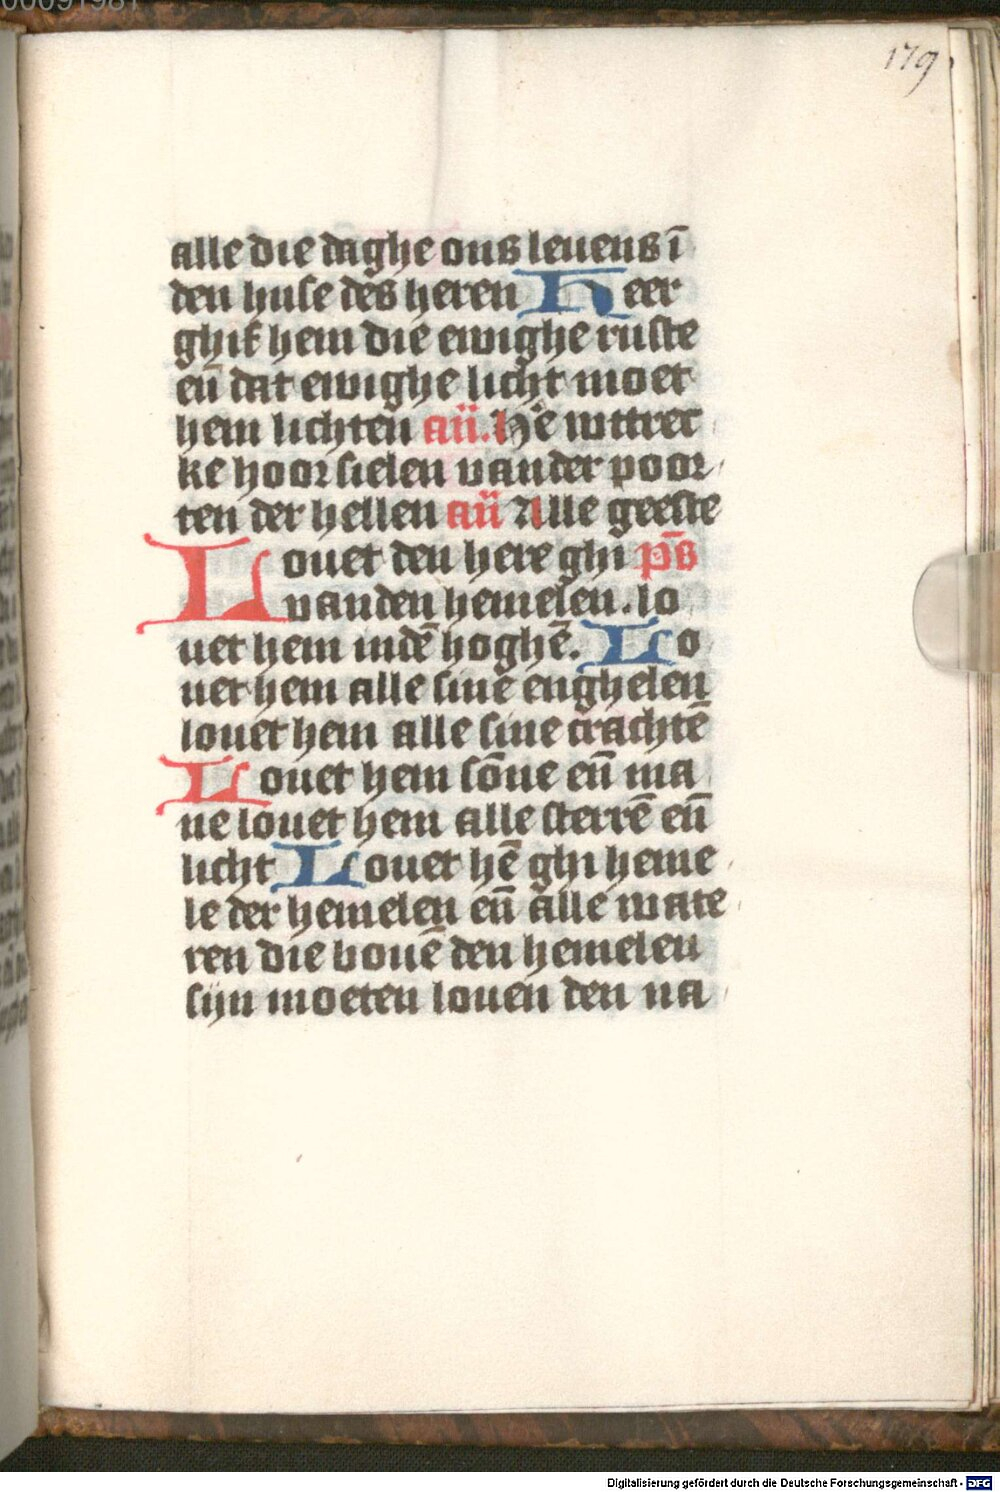 00091981
179
alle die daghe ons leuens ī
den huse des heren Heer
ghif hem die ewighe ruste
eñ dat ewighe licht moet
hem lichten añ. He wttrec
ke hoor sielen vander poor
ten der hellen añ Alle geeste
Louet den here ghi p̄s
vanden hemelen. lo
uet hem indē hoghē. Lo
uet hem alle sine enghelen
louet hem alle sine crachtē
Louet hem sōne eñ ma
ne louet hem alle sterrē eñ
licht Louet hē ghi heme
le der hemelen eñ alle wate
ren die bouē den hemelen
sijn moeten louen den na
Digitalisierung gefördert durch die Deutsche Forschungsgemeinschaft - DFG